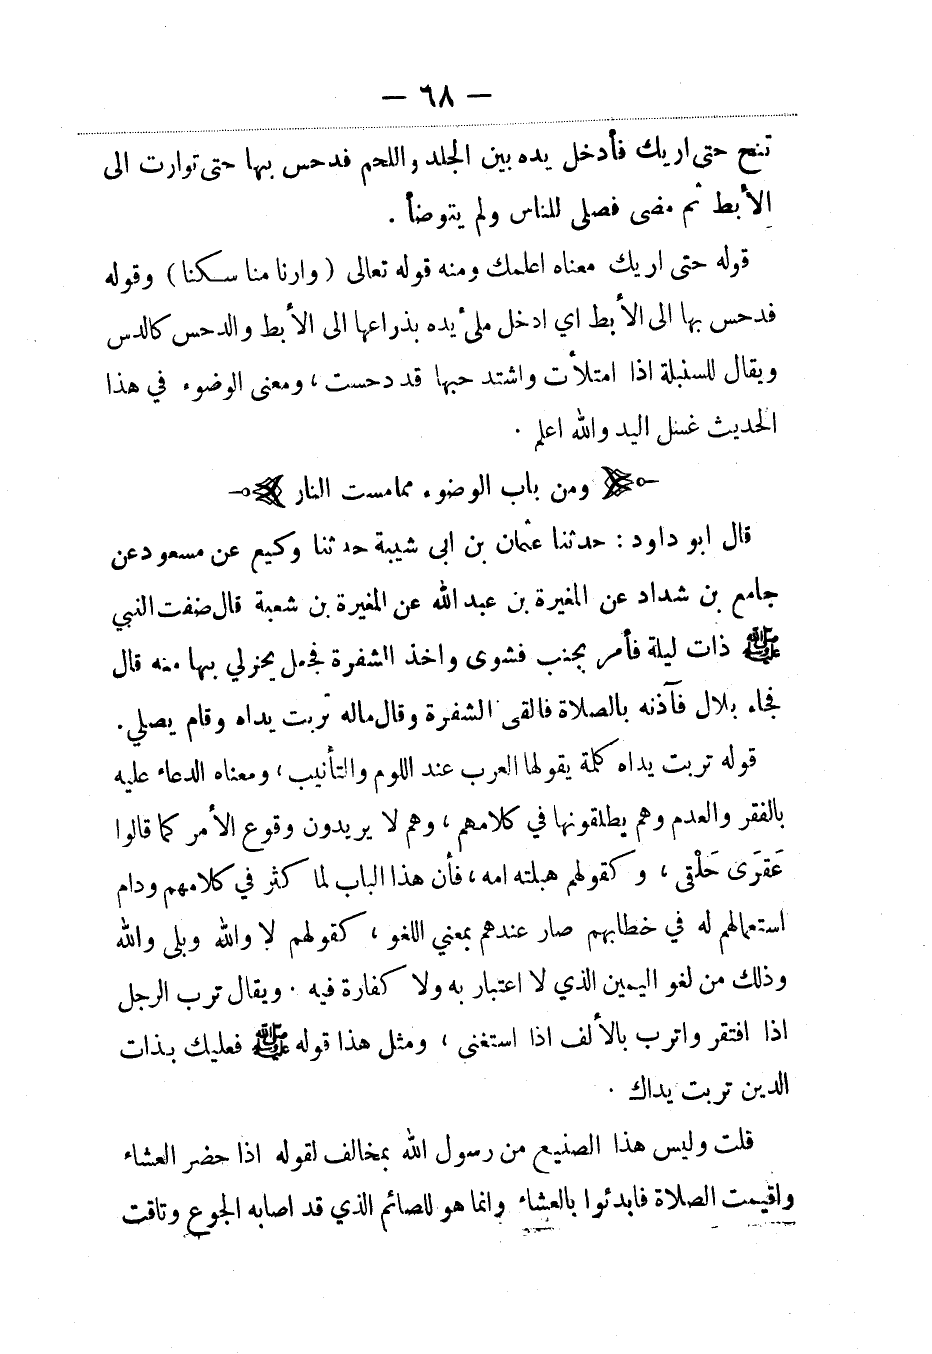 — ٦٨ —
تنح حتى اريك فأدخل يده بين الجلد واللحم فدحس بها حتى توارت الى
الأبط ثم مضى فصلى للناس ولم يتوضأ .
قوله حتى اريك معناه اعلمك ومنه قوله تعالى ( وارنا مناسكنا ) وقوله
فدحس بها الى الأبط اي ادخل ملئ يده بذراعها الى الأبط والدحس كالدس
ويقال للسنبلة اذا امتلأت واشتد حبها قد دحست ، ومعنى الوضوء في هذا
الحديث غسل اليد والله اعلم .
ومن باب الوضوء مما مست النار
قال ابو داود : حدثنا عثمان بن ابى شيبة حدثنا وكيع عن مسعود عن
جامع بن شداد عن المغيرة بن عبد الله عن المغيرة بن شعبة قال ضفت النبي
ﷺ ذات ليلة فأمر بجنب فشوى واخذ الشفرة فجعل يحزلي بها منه قال
فجاء بلال فآذنه بالصلاة فالقى الشفرة وقال ماله تربت يداه وقام يصلي .
قوله تربت يداه كلمة يقولها العرب عند اللوم والتأنيب ، ومعناه الدعاء عليه
بالفقر والعدم وهم يطلقونها في كلامهم ، وهم لا يريدون وقوع الأمر كما قالوا
عَقرَى حَلْقى ، وكقولهم هبلته امه ، فأن هذا الباب لما كثر في كلامهم ودام
استعمالهم له في خطابهم صار عندهم بمعني اللغو ، كقولهم لا والله وبلى والله
وذلك من لغو اليمين الذي لا اعتبار به ولا كفارة فيه . ويقال ترب الرجل
اذا افتقر واترب بالألف اذا استغنى ، ومثل هذا قوله ﷺ فعليك بذات
الدين تربت يداك .
قلت وليس هذا الصنيع من رسول الله بمخالف لقوله اذا حضر العشاء
واقيمت الصلاة فابدئوا بالعشاء وانما هو للصائم الذي قد اصابه الجوع وتاقت